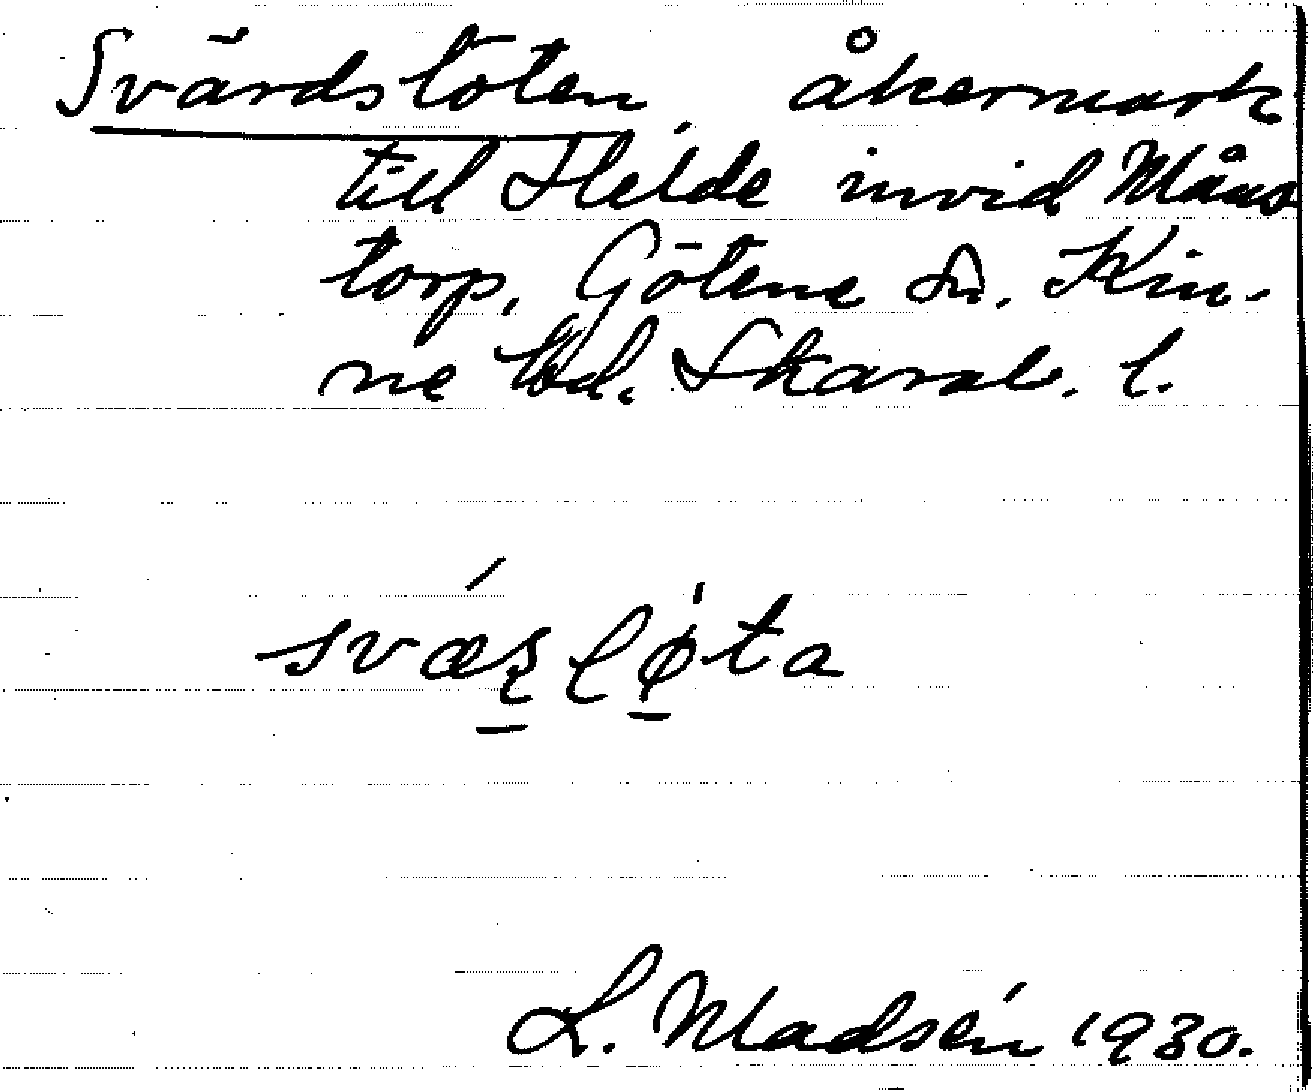 Svärdslöten, åkermark
till Helde invid Måns
torp, Götene sn. Kin-
ne hd. Skarab. l.
svǽʂlø̣ta
L. Madsén 1930.